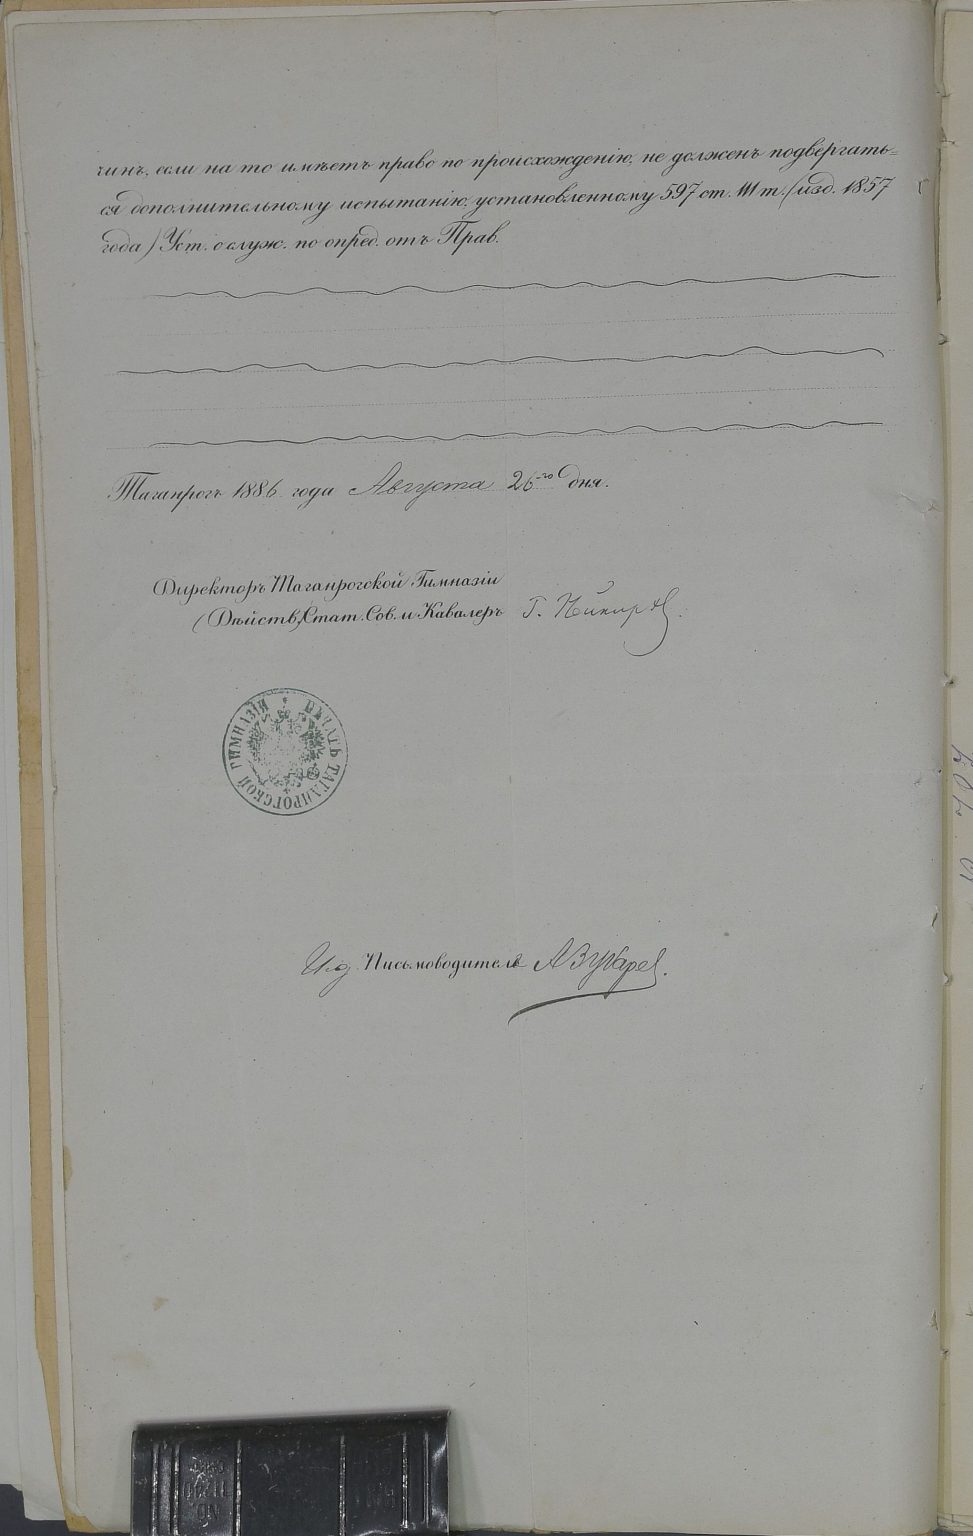 чинъ, если на то имѣетъ право по происхожденію, не долженъ подвергать=
ся дополнительному испытанію, установленному 597 ст. III т. (изд. 1857
года) Уст. о служ. по опред. отъ Прав.
Таганрогъ 1886 года Августа 26-го дня.
Директоръ Таганрогской Гимназіи
(Дѣйств.) Стат. Сов. и Кавалеръ Г.
ПЕЧАТЬ ТАГАНРОГСКОЙ ГИМНАЗІИ
И.д. Письмоводителя